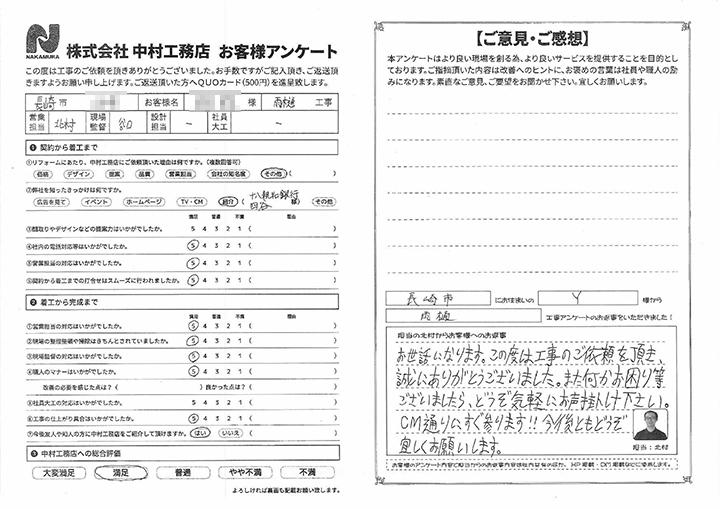 NAKAMURA
株式会社 中村工務店 お客様アンケート
この度は工事のご依頼を頂きありがとうございました。お手数ですがご記入頂き、ご返送頂
きますようお願い申し上げます。ご返送頂いた方へQUOカード(500円)を進呈致します。
長崎 市 お客様名 様 工事
営業担当 北村 現場監督 谷口 設計担当 ー 社員大工 ー
❶ 契約から着工まで
①リフォームにあたり、中村工務店にご依頼頂いた理由は何ですか。(複数回答可)
価格 デザイン 提案 品質 営業担当 会社の知名度 その他 ( )
②弊社を知ったきっかけは何ですか。
広告を見て イベント ホームページ TV・CM 紹介 ( 十八親和銀行 様) その他
満足 普通 不満 理由
③間取りやデザインなどの提案力はいかがでしたか。 5 4 3 2 1 ( )
④社内の電話対応等はいかがでしたか。 5 4 3 2 1 ( )
⑤営業担当の対応はいかがでしたか。 5 4 3 2 1 ( )
⑥契約から着工までの打合せはスムーズに行われましたか。 5 4 3 2 1 ( )
❷ 着工から完成まで
満足 普通 不満 理由
①営業担当の対応はいかがでしたか。 5 4 3 2 1 ( )
②現場の整理整頓や掃除はきちんとされていましたか。 5 4 3 2 1 ( )
③現場監督の対応はいかがでしたか。 5 4 3 2 1 ( )
④職人のマナーはいかがでしたか。 5 4 3 2 1 ( )
改善の必要を感じた点は?( ) 良かった点は?( )
⑤社員大工の対応はいかがでしたか。 5 4 3 2 1 ( )
⑥工事の仕上がり具合はいかがでしたか。 5 4 3 2 1 ( )
⑦今後友人や知人の方に中村工務店をご紹介して頂けますか。 はい いいえ ( )
❸ 中村工務店への総合評価
大変満足 満足 普通 やや不満 不満
よろしければ裏面も記載お願い致します。
【ご意見・ご感想】
本アンケートはより良い現場を創る為、より良いサービスを提供することを目的とし
ております。ご指摘頂いた内容は改善へのヒントに、お褒めの言葉は社員や職人の励
みになります。素直なご意見、ご要望をお聞かせ下さい。宜しくお願いします。
長崎市 にお住まいの Y 様から
工事アンケートのお返事をいただきました!
担当の北村からお客様へのお返事
お世話になります。この度は工事のご依頼を頂き、
誠にありがとうございました。また何かお困り等
ございましたら、どうぞ気軽にお声掛け下さい。
CM通りにすぐ参ります!! 今後ともどうぞ
宜しくお願いします。
担当:北村